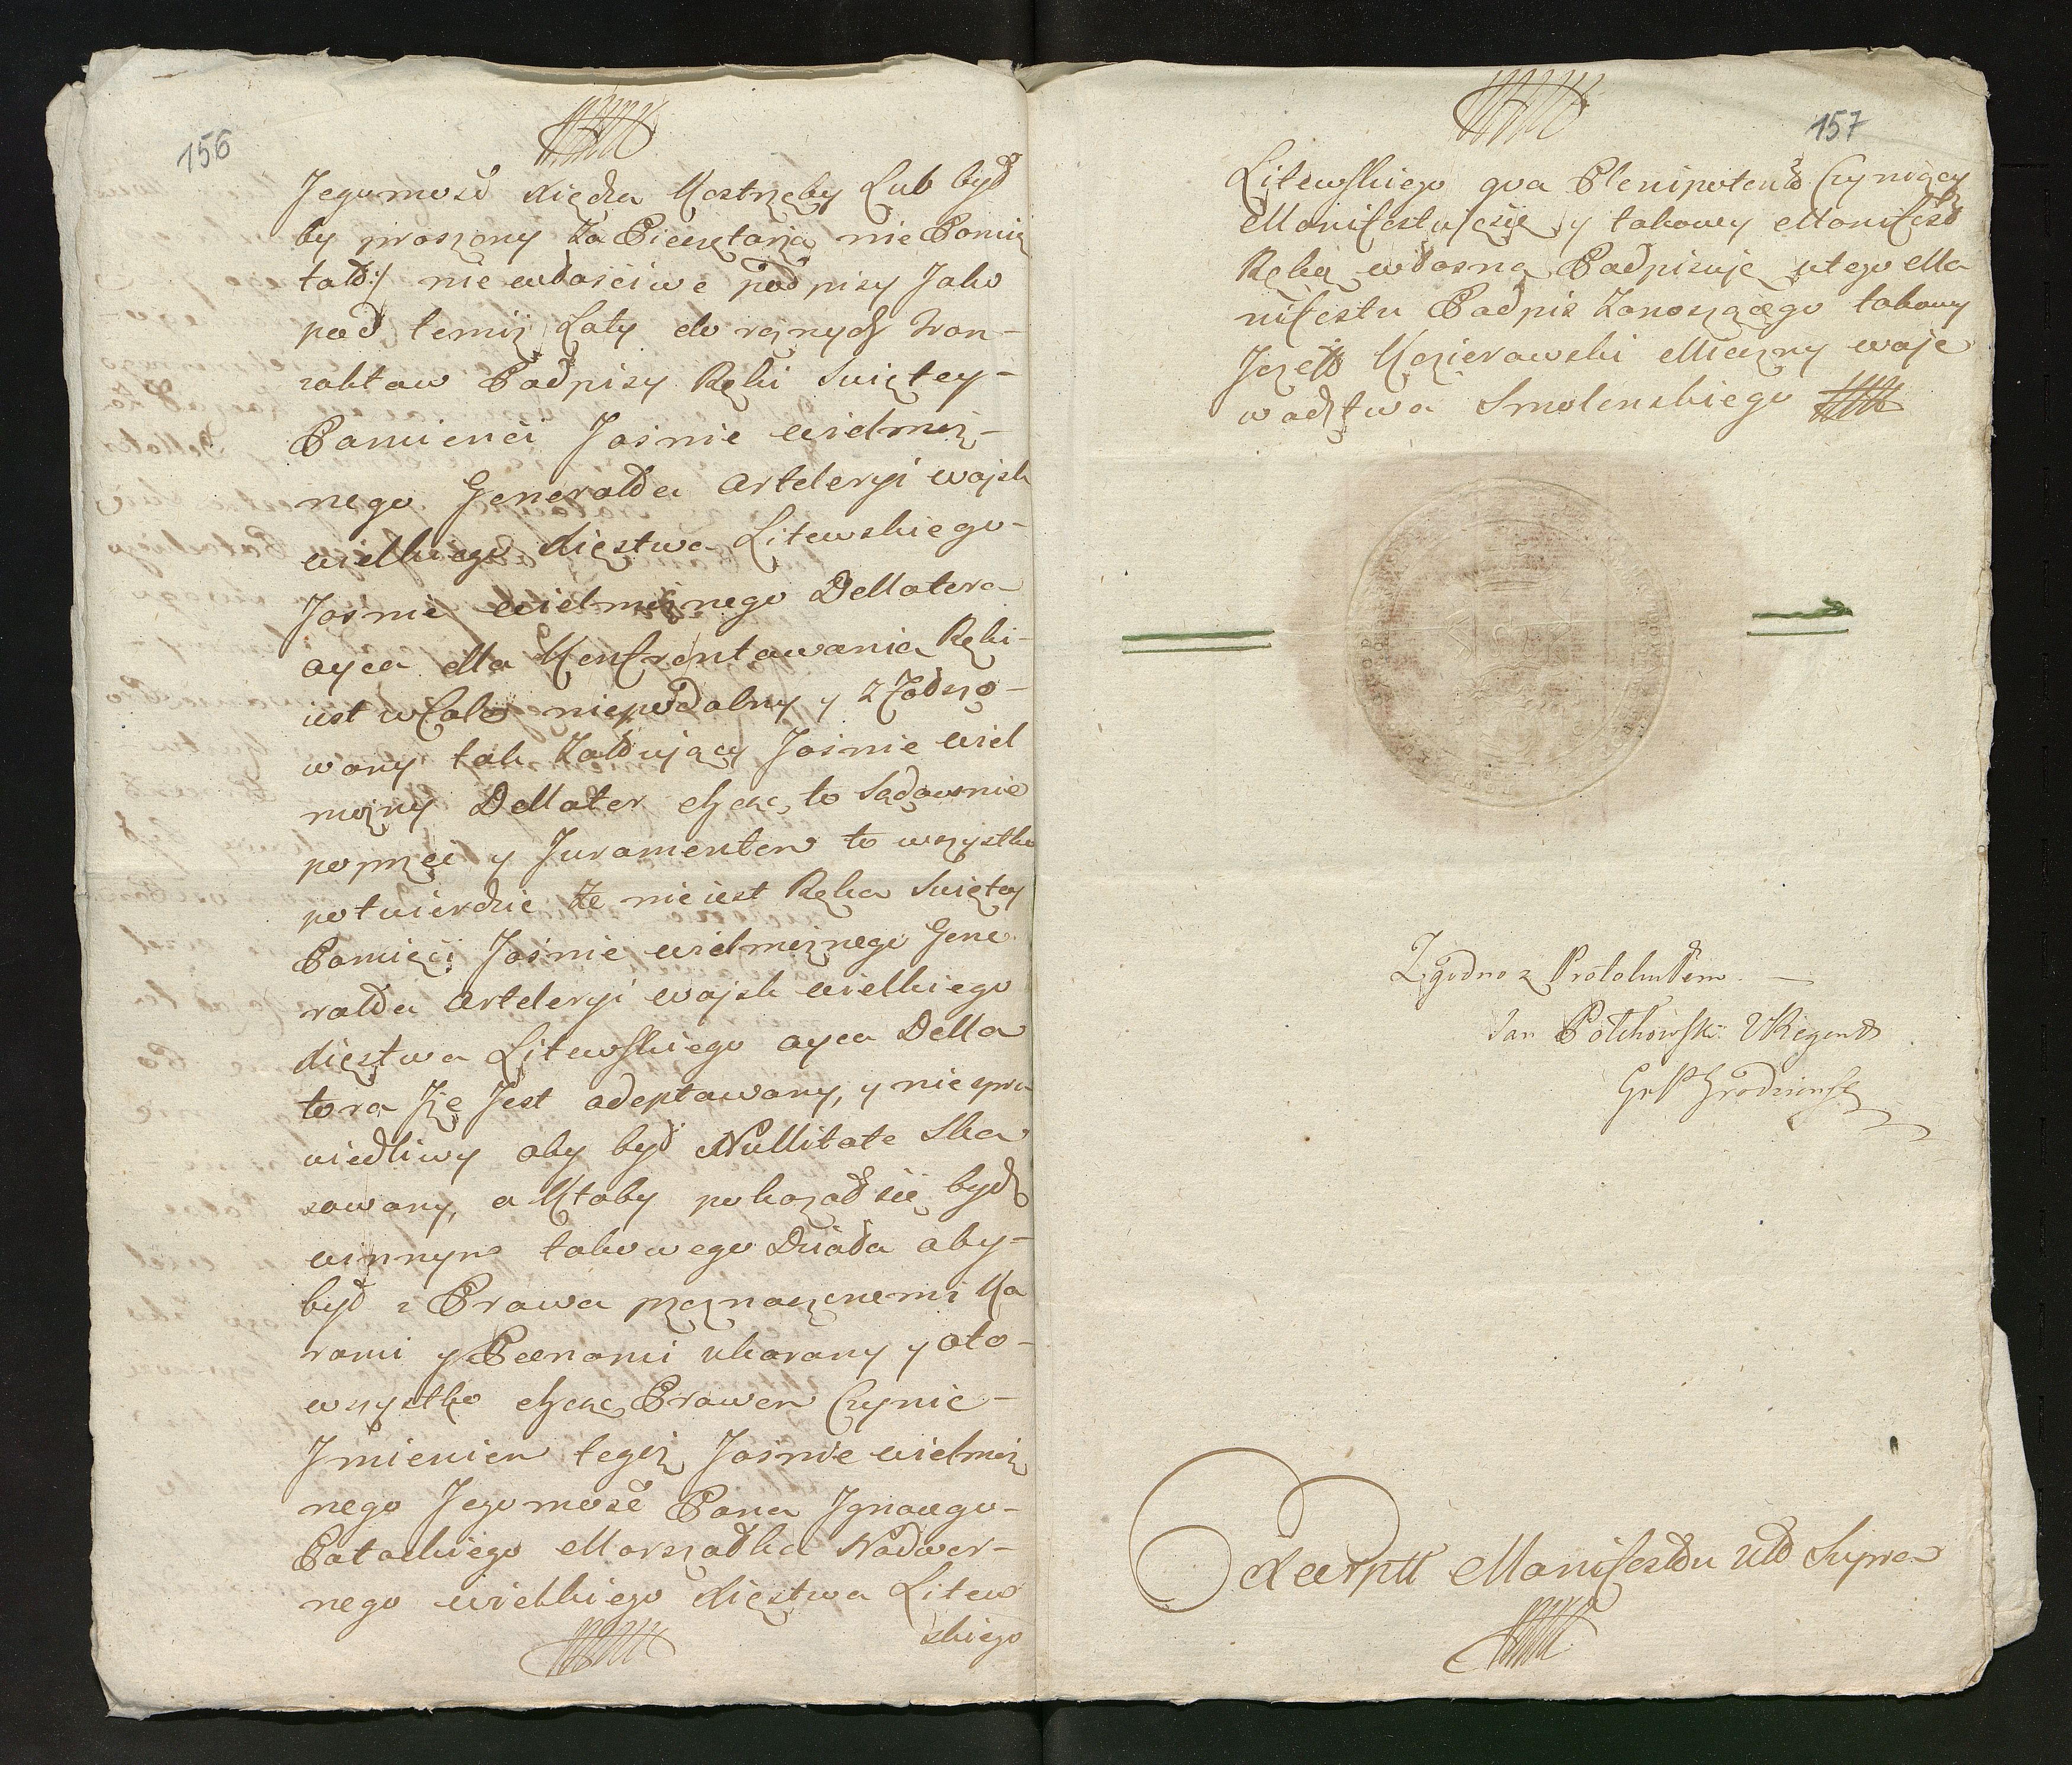 156
Jegumość Xiędza Kostrzeby Lub był
by proszony za Pieczętarza nie Pomię
tał:/ nie właściwe podpisy Jako
pod temiż Laty do roznych tran-
zaktow Padpisy Ręki Swiętey-
Pamienci Jasnie wielmoz-
nego Generałła Artyleryi woysk
wielkiego Xięstwa Litewskiego-
Jasnie wielmoznego Dellatora
oyca dla Konfrontawania Ręki-
iest wcale niepodabny y zfałszo-
wany tak Załuiący Jasnie wiel
mozny Dellator chcąc to Sądawnie
poprzeć y Juramentem to wszystko
potwierdzic Ze nie iest Ręka Swiętey
Pamięci Jasnie wielmoznego Gene
rałła Artyleryi woysk wielkiego
Xięstwa Litewskiego oyca Della
tora Jże Jest adoptawany, y niespra
wiedliwy aby był Nullitate Ska
sowany, a Ktoby pokazał się bydź
winnym takowego Działa aby-
był z Prawa przeznaczonemi Ka
rami y Poenami ukarany y oto-
wszystko chcąc Prawem Czynic-
Jmieniem tegoż Jasnie wielmoż
nego Jegomość Pana Jgnacego-
Patockiego Marszałka Nadwor-
nego wielkiego Xięstwa Litew
skiego
157
Litewskiego qva Plenipotent Czyniący
Manifestuje się y takowy Manifest
Ręką własną Padpisuję utego Ma
nifestu Padpis Zanoszącego takowy
Jozeff Kozierawski Mieczny woje
wodztwa Smolenskiego
Zgodno z Protokułłem
Jan Połchowski VRegent
Grodzieński
Extrakt Manifestu Utt Supra